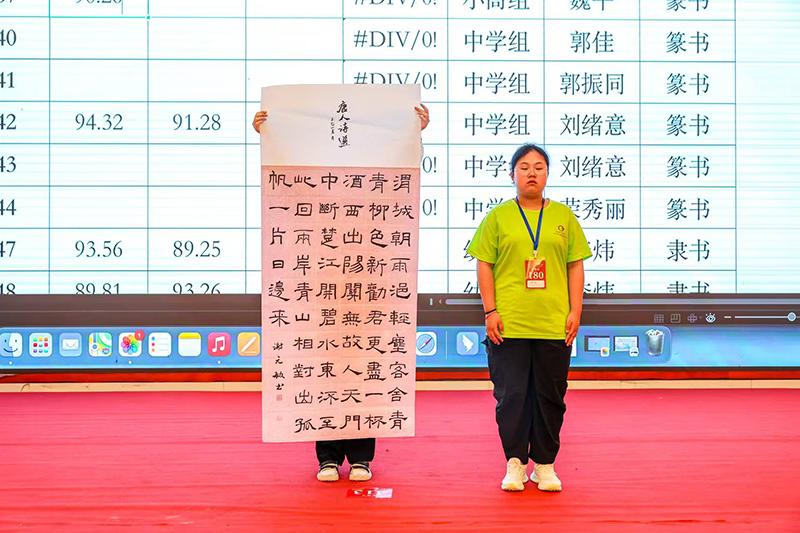 90.28 小高组 魏平 篆书
40 #DIV/0! 中学组 郭佳 篆书
41 #DIV/0! 中学组 郭振同 篆书
42 94.32 91.28 中学组 刘绪意 篆书
43 中学 刘绪意 篆书
44 /0! 中学 荣秀丽 篆书
47 93.56 89.25 炜 隶书
48 89.81 93.26 隶书
唐人诗選
渭城朝雨浥輕塵客舍青
青柳色新勸君更盡一杯
酒西出陽關無故人天門
中斷楚江開碧水東流至
此回兩岸青山相對出孤
帆一片日邊來
180